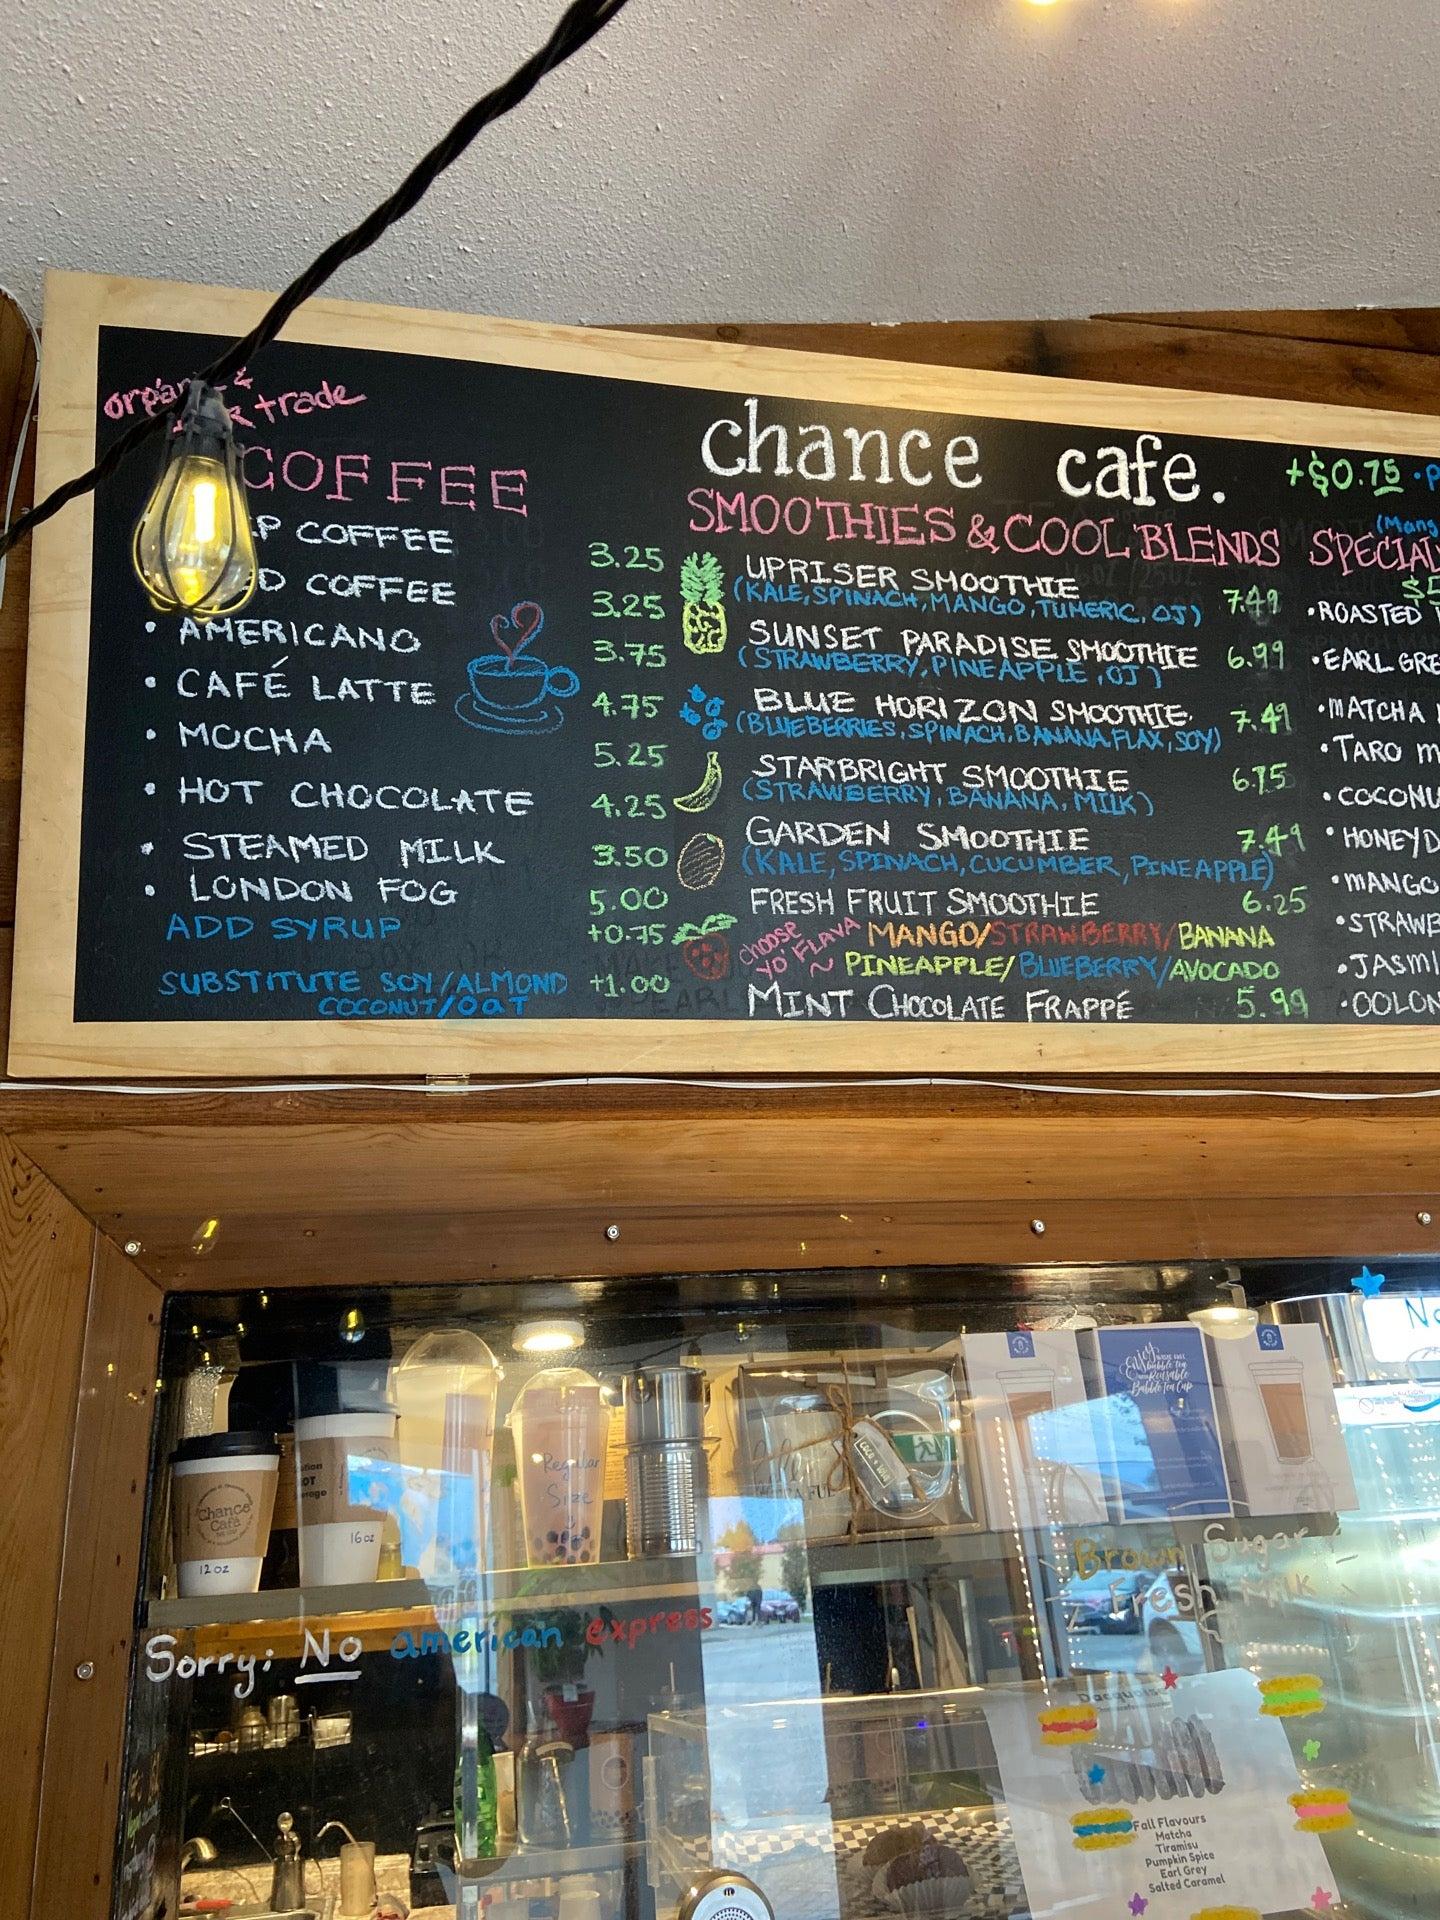 trade
COFFEE
COFFEE 3.25
COFFEE 3.25
• AMERICANO 3.75
• CAFÉ LATTE 4.75
• MOCHA 5.25
• HOT CHOCOLATE 4.25
• STEAMED MILK 3.50
• LONDON FOG 5.00
ADD SYRUP +0.75
SUBSTITUTE SOY/ALMOND +1.00
COCONUT/OAT
chance cafe.
SMOOTHIES & COOL BLENDS
UPRISER SMOOTHIE 7.49
(KALE, SPINACH, MANGO, TUMERIC, OJ)
SUNSET PARADISE SMOOTHIE 6.99
(STRAWBERRY, PINEAPPLE, OJ)
BLUE HORIZON SMOOTHIE. 7.49
(BLUEBERRIES, SPINACH, BANANA, FLAX, SOY)
STARBRIGHT SMOOTHIE 6.75
(STRAWBERRY, BANANA, MILK)
GARDEN SMOOTHIE 7.49
(KALE, SPINACH, CUCUMBER, PINEAPPLE)
FRESH FRUIT SMOOTHIE 6.25
choose
YO' FLAVA
~
MANGO/STRAWBERRY/BANANA
PINEAPPLE/BLUEBERRY/AVOCADO
MINT CHOCOLATE FRAPPÉ 5.99
+$0.75
(Mang
SPECIAL
• ROASTED
• EARL GRE
• MATCHA
• TARO
• COCONU
• HONEYD
• MANGO
• STRAWB
• JASMI
• OOLON
Chance
Café
12oz
16oz
Regular
Size
Enjoy
bubble tea
Reusable
Bubble Tea Cup
COCO
Brown Sugar
Fresh Milk
Sorry: No american express
CAUTION
Dacquoise
Fall Flavours
Matcha
Tiramisu
Pumpkin Spice
Earl Grey
Salted Caramel